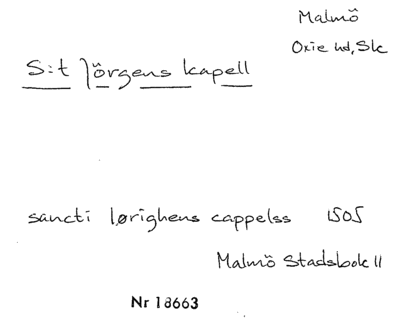 Malmö
Oxie hd, Sk
S:t Jörgens kapell
sancti Iørighens cappelss 1505
Malmö Stadsbok II
Nr 18663